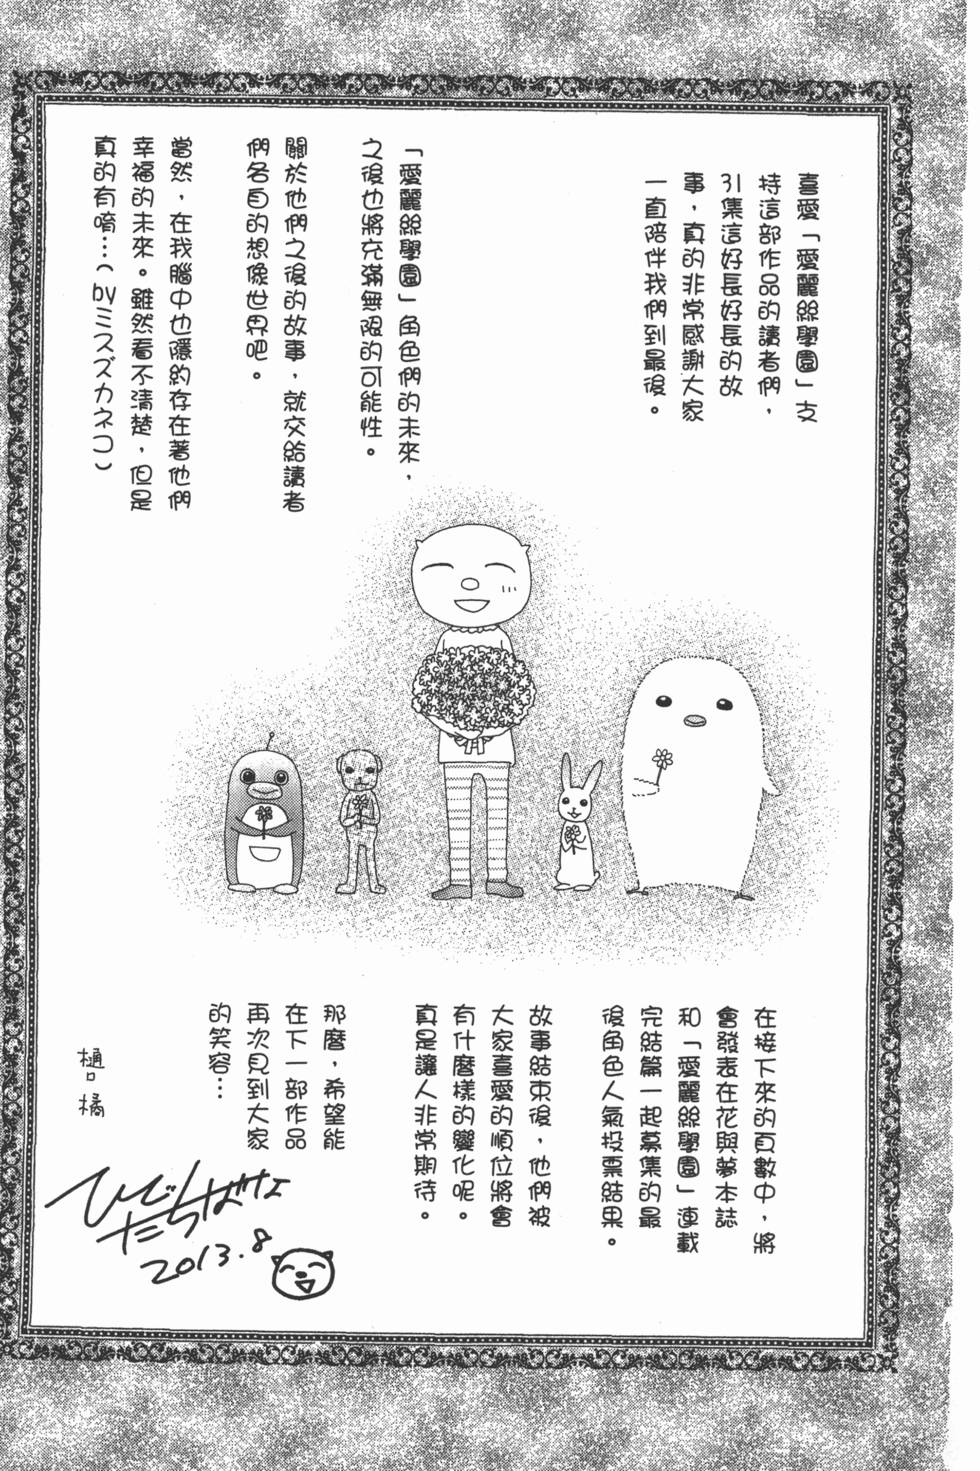 喜愛「愛麗絲學園」支
持這部作品的讀者們，
31集這好長好長的故
事，真的非常感謝大家
一直陪伴我們到最後。
「愛麗絲學園」角色們的未來，
之後也將充滿無限的可能性。
關於他們之後的故事，就交給讀者
們各自的想像世界吧。
當然，在我腦中也隱約存在著他們
幸福的未來。雖然看不清楚，但是
真的有唷…（byミスズカネコ）
在接下來的頁數中，將
會發表在花與夢本誌
和「愛麗絲學園」連載
完結篇一起募集的最
後角色人氣投票結果。
故事結束後，他們被
大家喜愛的順位將會
有什麼樣的變化呢。
真是讓人非常期待。
那麼，希望能
在下一部作品
再次見到大家
的笑容…
樋口 橘
ひぐち
たちばな
2013.8